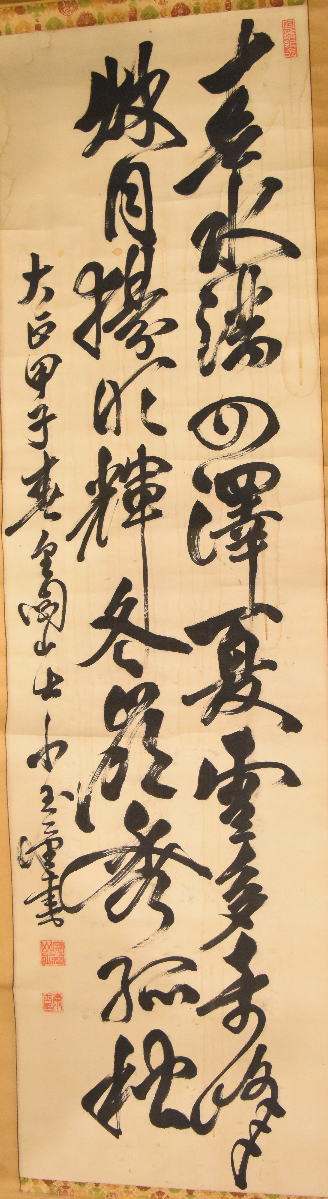 春水滿四澤夏雲多奇峰
秋月揚明輝冬嶺秀孤松
大正甲子春 山 玉 書